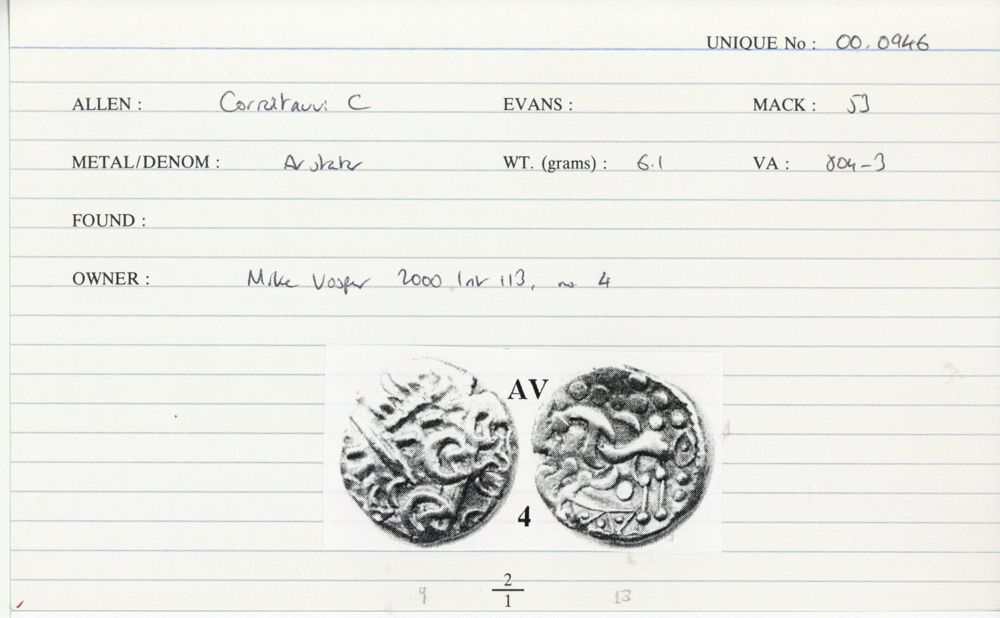 UNIQUE No : 00.0946
ALLEN : Corieltauvi C EVANS : MACK : 53
METAL/DENOM : Av stater WT. (grams) : 6.1 VA : 804-3
FOUND :
OWNER : Mike Vosper 2000 list 113, no 4
AV
4
2
9 1 13